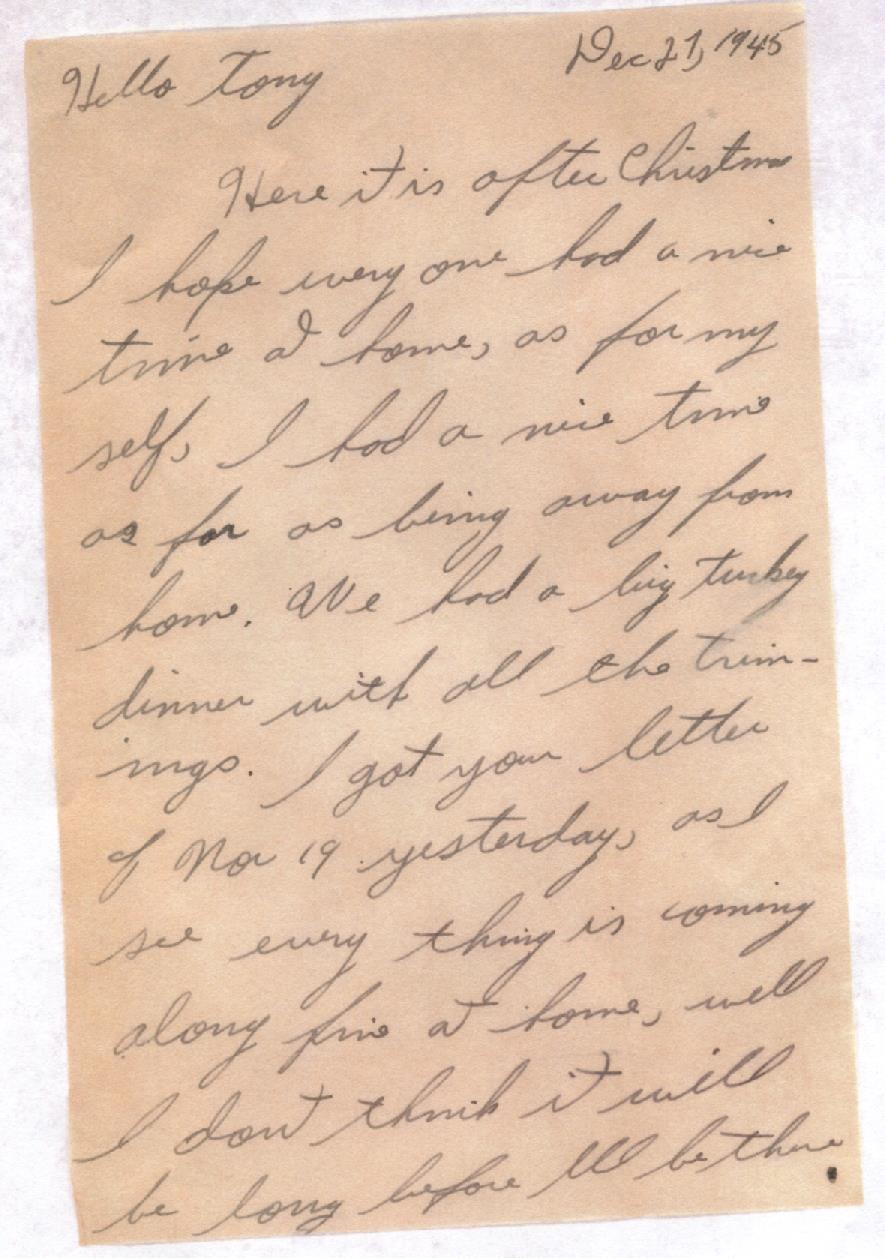 Dec 27, 1945
Hello Tony
Here it is after Christmas
I hope every one had a nice
time at home, as for my
self, I had a nice time
as far as being away from
home. We had a big turkey
dinner with all the trim-
ings. I got your letter
of Nov 19 yesterday, as I
see every thing is coming
along fine at home, well
I don't think it will
be long before I'll be there